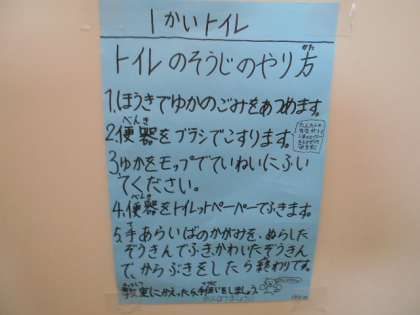 1かいトイレ
トイレのそうじのやり方
かた
1.ほうきでゆかのごみをあつめます。
べんき
2.便器をブラシでこすります。
3.ゆかをモップでていねいにふい
てください。
べんき
4.便器をトイレットペーパーでふきます。
5.手あらいばのかがみを、ぬらした
ぞうきんでふき、かわいたぞうきん
で、からぶきをしたら終わりです。
教室にかえったら、手伝いをしましょう。